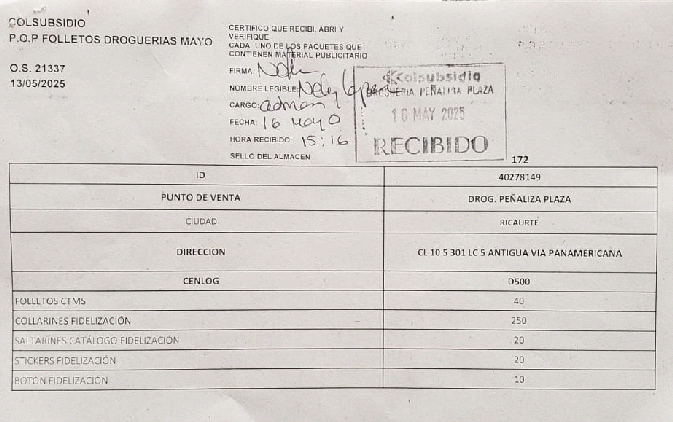 COLSUBSIDIO
P.O.P FOLLETOS DROGUERIAS MAYO
O.S. 21337
13/05/2025
CERTIFICO QUE RECIBI, ABRI Y
VERIFIQUE
CADA UNO DE LOS PAQUETES QUE
CONTENEN MATERIAL PUBLICITARIO
FIRMA:
NOMBRE LEGIBLE: Nely Lopez
CARGO: admon
FECHA: 16 mayo
HORA RECIBIDO 15:16
SELLO DEL ALMACEN
Colsubsidio
DROGUERIA PEÑALIZA PLAZA
16 MAY 2025
RECIBIDO
172
ID 40278149
PUNTO DE VENTA DROG. PEÑALIZA PLAZA
CIUDAD RICAURTE
DIRECCION CL 10 5 301 LC 5 ANTIGUA VIA PANAMERICANA
CENLOG D500
FOLLETOS CTMS 40
COLLARINES FIDELIZACIÓN 250
SALTARINES CATÁLOGO FIDELIZACIÓN 20
STICKERS FIDELIZACIÓN 20
BOTÓN FIDELIZACIÓN 10